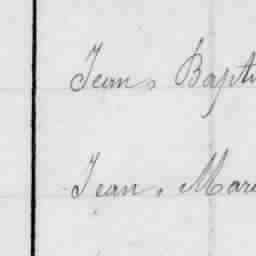 Jean, Bapti
Jean, Mari